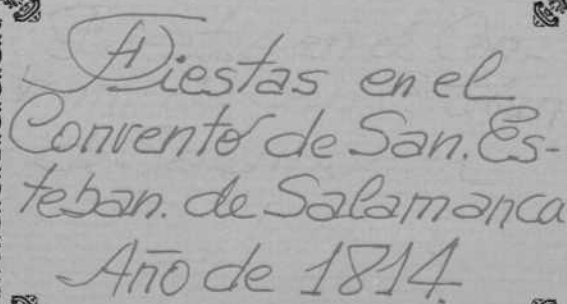 Fiestas en el
Convento de San. Es-
teban. de Salamanca
Año de 1814.